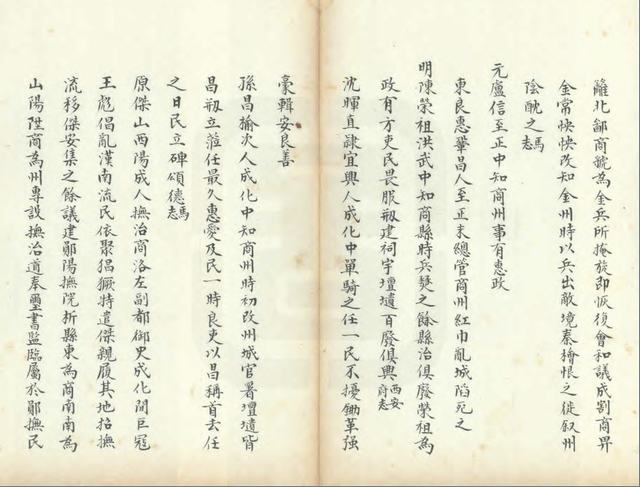 離北鄙商虢為金兵所掩旋即恢復會和議成割商畀
金常怏怏改知金州時以兵出敵境秦檜恨之徙叙州
陰酖之馮志
元盧信至正中知商州事有惠政
東良惠鞏昌人至正末總管商州紅巾亂城陷死之
明陳榮祖洪武中知商縣時兵燹之餘縣治俱廢榮祖為
政有方吏民畏服剏建祠宇壇壝百廢俱興西安府志
沈暉直隷宜興人成化中單騎之任一民不擾鋤革强
豪輯安良善
孫昌榆次人成化中知商州時初改州城官署壇壝皆
昌剏立蒞任最久惠愛及民一時良吏以昌稱首去任
之日民立碑頌德馮志
原傑山西陽成人撫治商洛左副都御史成化間巨冦
王彪倡亂漢南流民依聚猖獗特遣傑親履其地招撫
流移傑安集之餘議建鄖陽撫院折縣東為商南南為
山陽陞商為州專設撫治道奉璽書監臨屬於鄖撫民